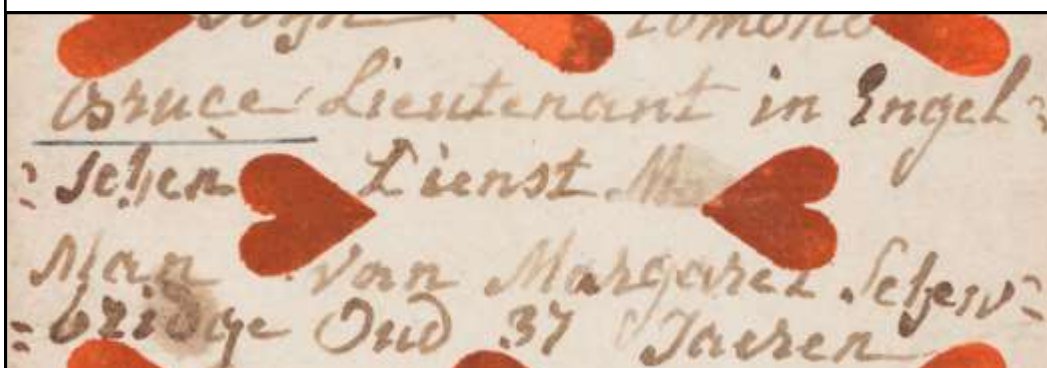 Bruce Lieutenant in Engel=
=schen Dienst
Man van Margaret Schew=
=bridge Oud 37 Jaeren